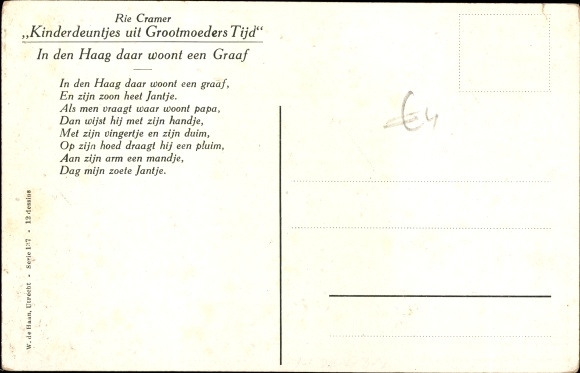 Rie Cramer
„Kinderdeuntjes uit Grootmoeders Tijd“
In den Haag daar woont een Graaf
In den Haag daar woont een graaf,
En zijn zoon heet Jantje.
Als men vraagt waar woont papa,
Dan wijst hij met zijn handje,
Met zijn vingertje en zijn duim,
Op zijn hoed draagt hij een pluim,
Aan zijn arm een mandje,
Dag mijn zoete Jantje.
€4
W. de Haan, Utrecht • Serie 127 • 12 dessins